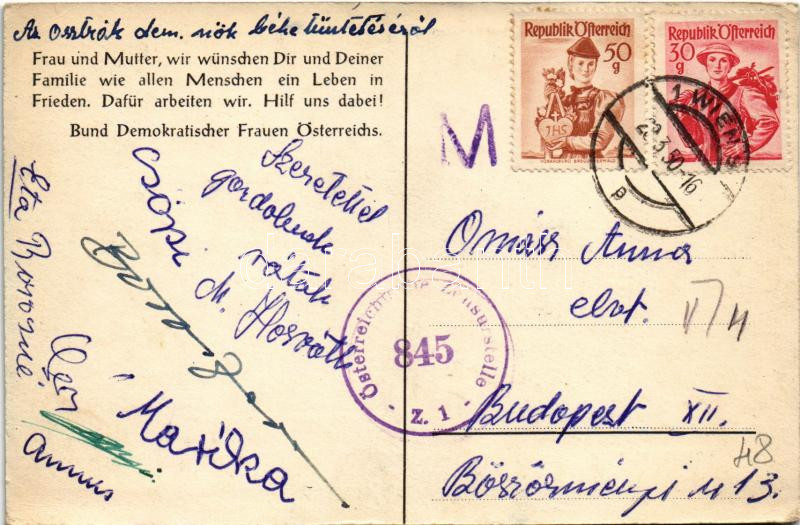 Az osztrák dem. nők béke tüntetéséről
Frau und Mutter, wir wünschen Dir und Deiner
Familie wie allen Menschen ein Leben in
Frieden. Dafür arbeiten wir. Hilf uns dabei!
Bund Demokratischer Frauen Österreichs.
Republik Österreich
50
g
JHS
Republik Österreich
30
g
1 WIEN
29.3.50-16
P
M
Szeretettel
gondolunk
rátok
M. Horváth
Csöpi
Marika
Annus
Österreichische Zensurstelle
845
Z. 1
Omáss Anna
elvt.
Budapest XII.
Böszörményi u 13.
48